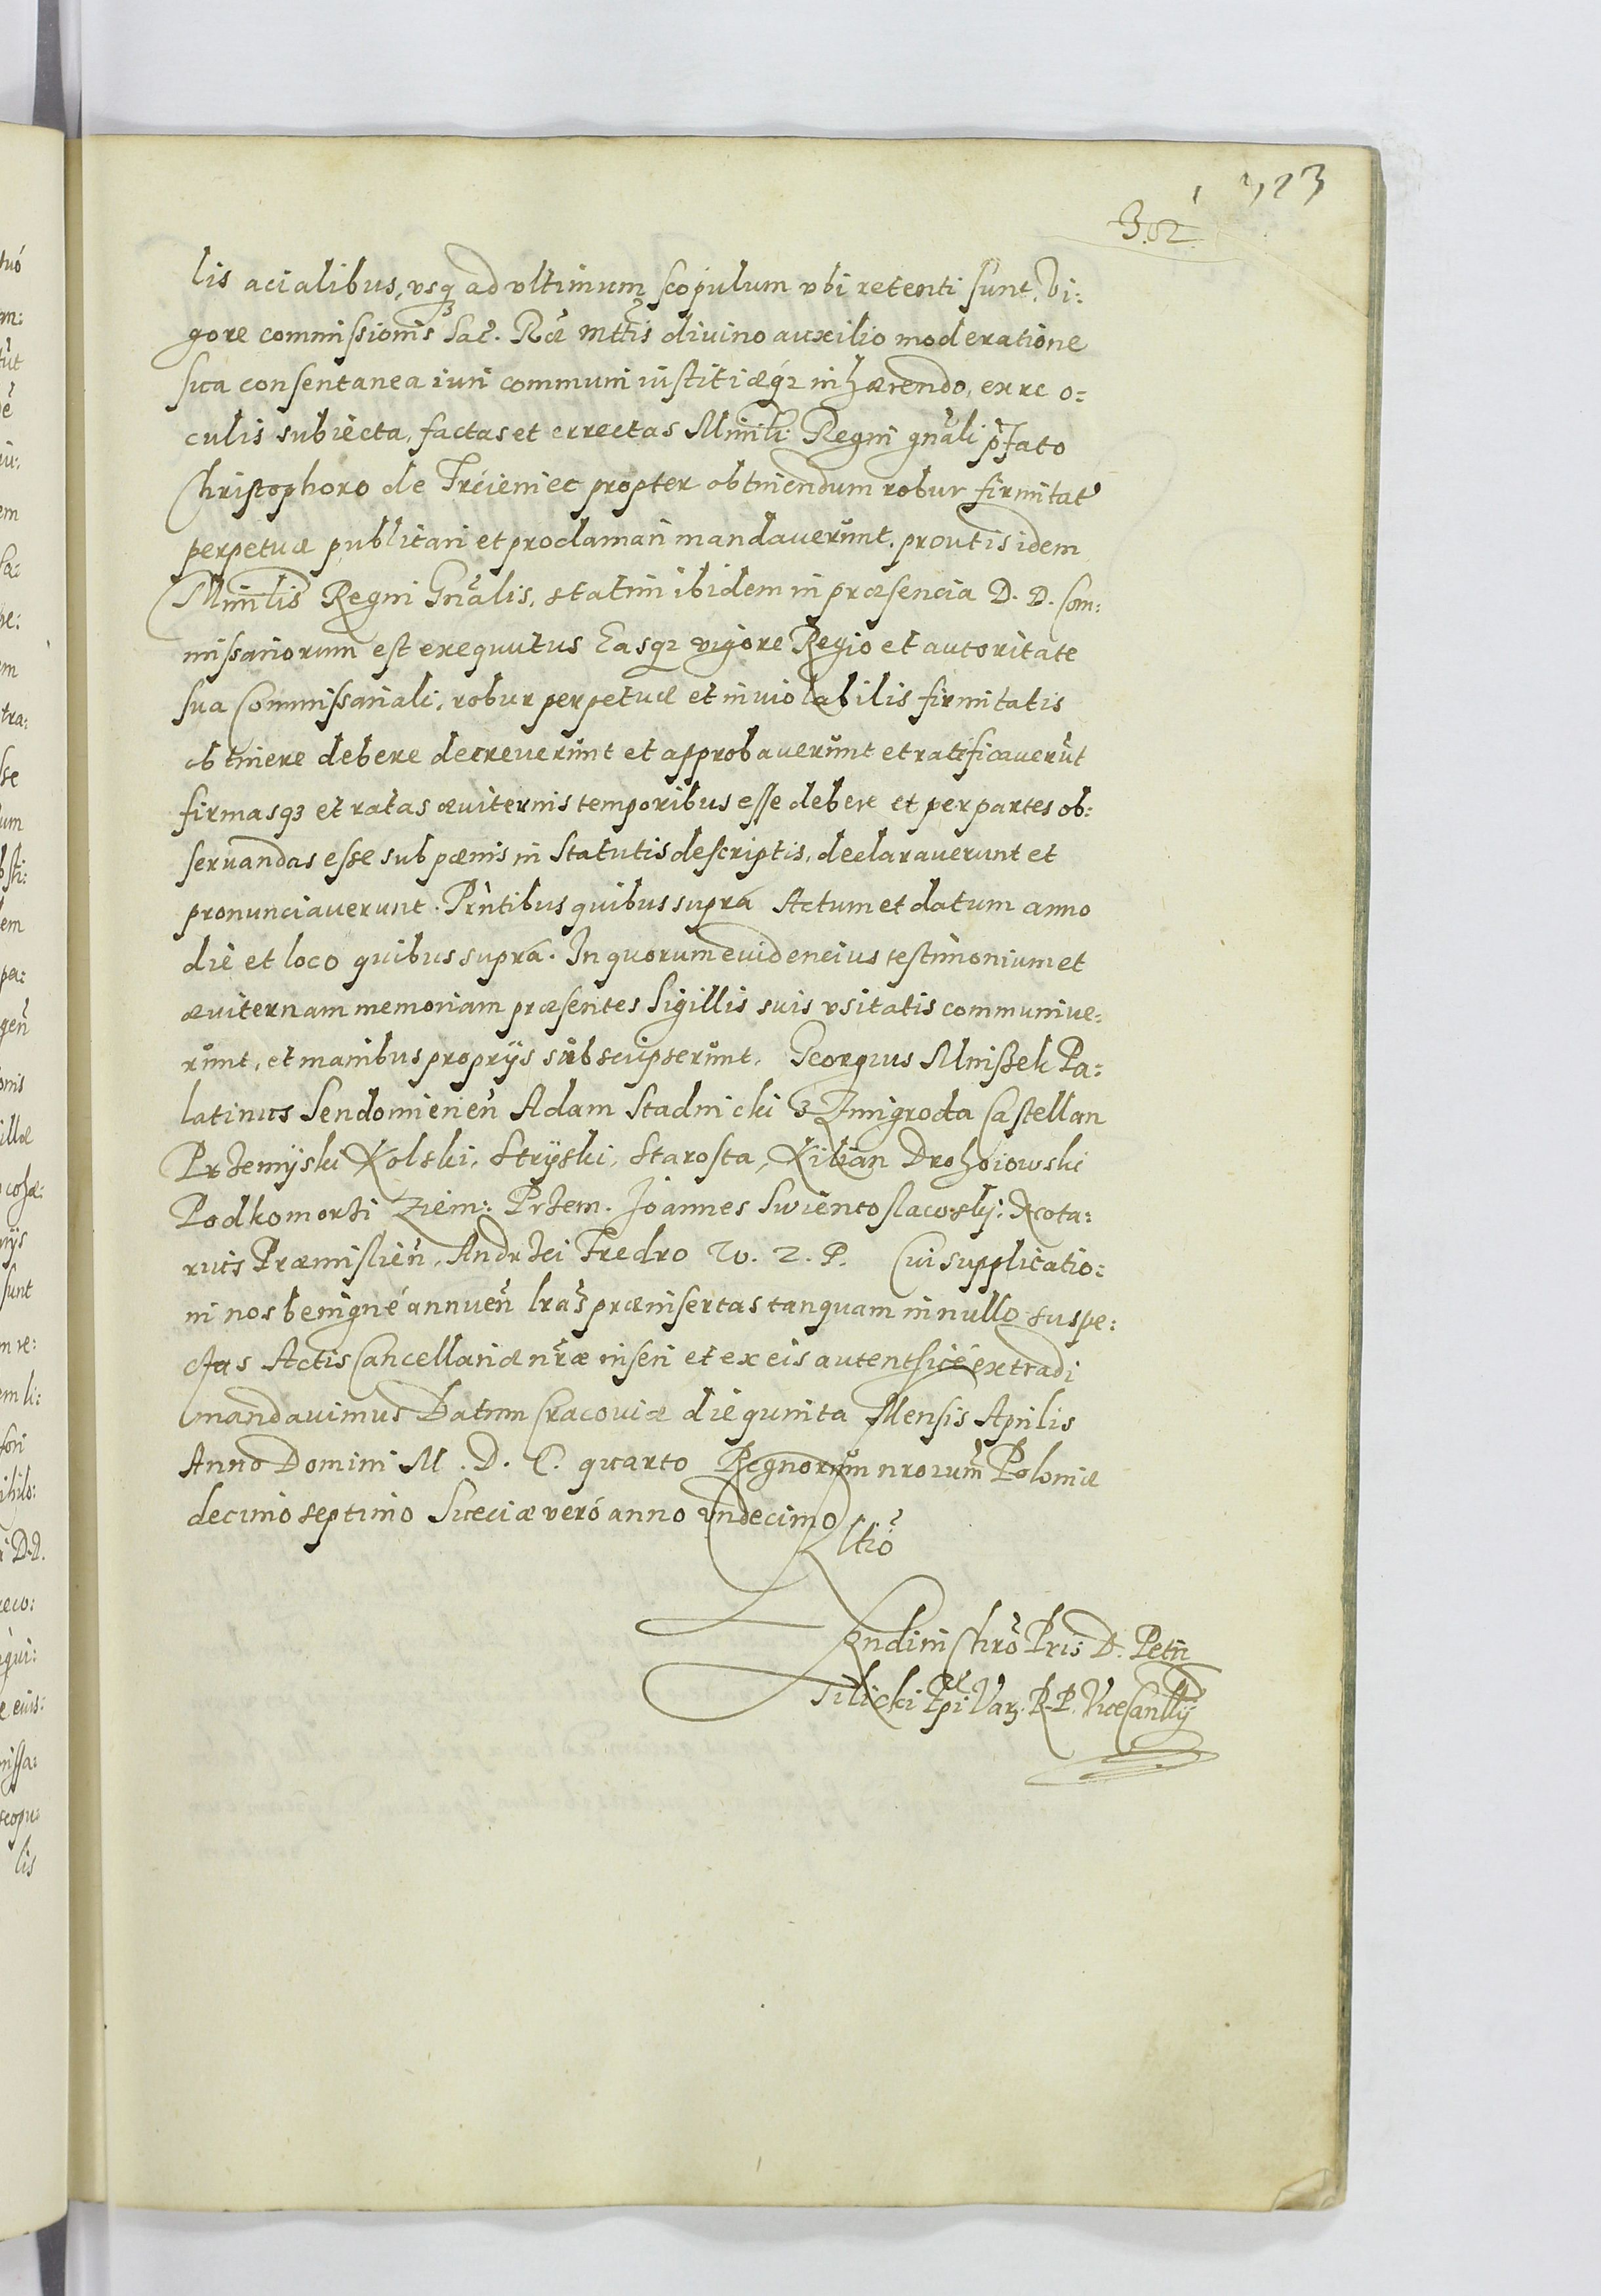 323
302
lis acialibus, vsq3 ad vltimum scopulum vbi retenti sunt. Vi:
gore commissionis Sac. Rae Mttis divino auxilio moderatione
sua consentanea iuri communi iustitiaeq2 inhaerendo, ex re o:
culis subiecta, factas et errectas Minlĩ Regni gnãli p̃fato
Christophoro de Trcieniec propter obtinendum robur firmitat'
perpetuae publicari et proclamari mandaverunt. prout is idem
Minlis Regni Gnãlis, statim ibidem in praesencia D. D. Com:
missariorum est exequutus Easq2 vigore Regio et autoritate
sua Commissariali, robur perpetuae et inviolabilis firmitatis
obtinere debere decreverunt et approbaverunt et ratificaverũt
firmasq3 et ratas aeviternis temporibus esse debere et per partes ob:
servandas esse sub paenis in Statutis descriptis, declaraverunt et
pronunciaverunt. Pr̃ntibus quibus supra Actum et datum anno
die et loco quibus supra. In quorum evidencius testimonium et
aeviternam memoriam praesentes Sigillis suis vsitatis communive:
runt, et manibus proprijs subscripserunt. Georgius Mnissek Pa:
latinus Sendomirień Adam Stadnicki z Zmigroda Castellan
Przemijski Kolski, Strijski, Starosta, Kilian Drohoiowski
Podkomorzi Ziem: Przem. Joannes Swientoslawskij: Nota:
rius Praemislień, Andrzei Fredro W. Z. P. Cui supplicatio:
ni nos benigné annueñ lrãs praeinsertas tanquam in nullo suspe:
ctas Actis Cancellariae nr̃ae inseri et ex eis autentice extradi
mandavimus Datum Cracoviae die quinta Mensis Aprilis
Anno Domini M. D. C. quarto Regnorum nrorum Poloniae
decimo septimo Sueciae veró anno vndecimo
Rltiõ
Rndi in Chrõ Pris D. Petri
Tilicki Epi Var. R. P. ViceCanllij